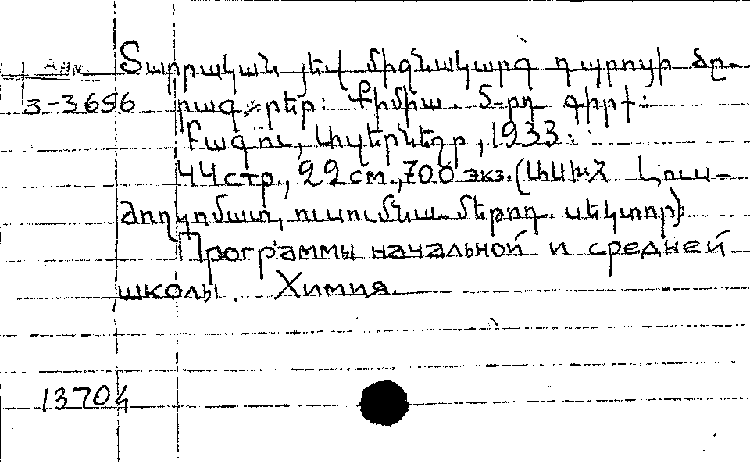 Арм.
Տարրական յեվ միջնակարգ դպրոցի ծը-
3-3656 րագրեր: Քիմիա. 5-րդ գիրք:
Բագու, Ազերնեշր, 1933:
44 стр., 22 см., 700 экз. (ԱԽՍՀ Լուս-
ժողկոմատ, ուսումնա-մեթոդ. սեկտոր):
Программы начальной и средней
школы. Химия.
13704